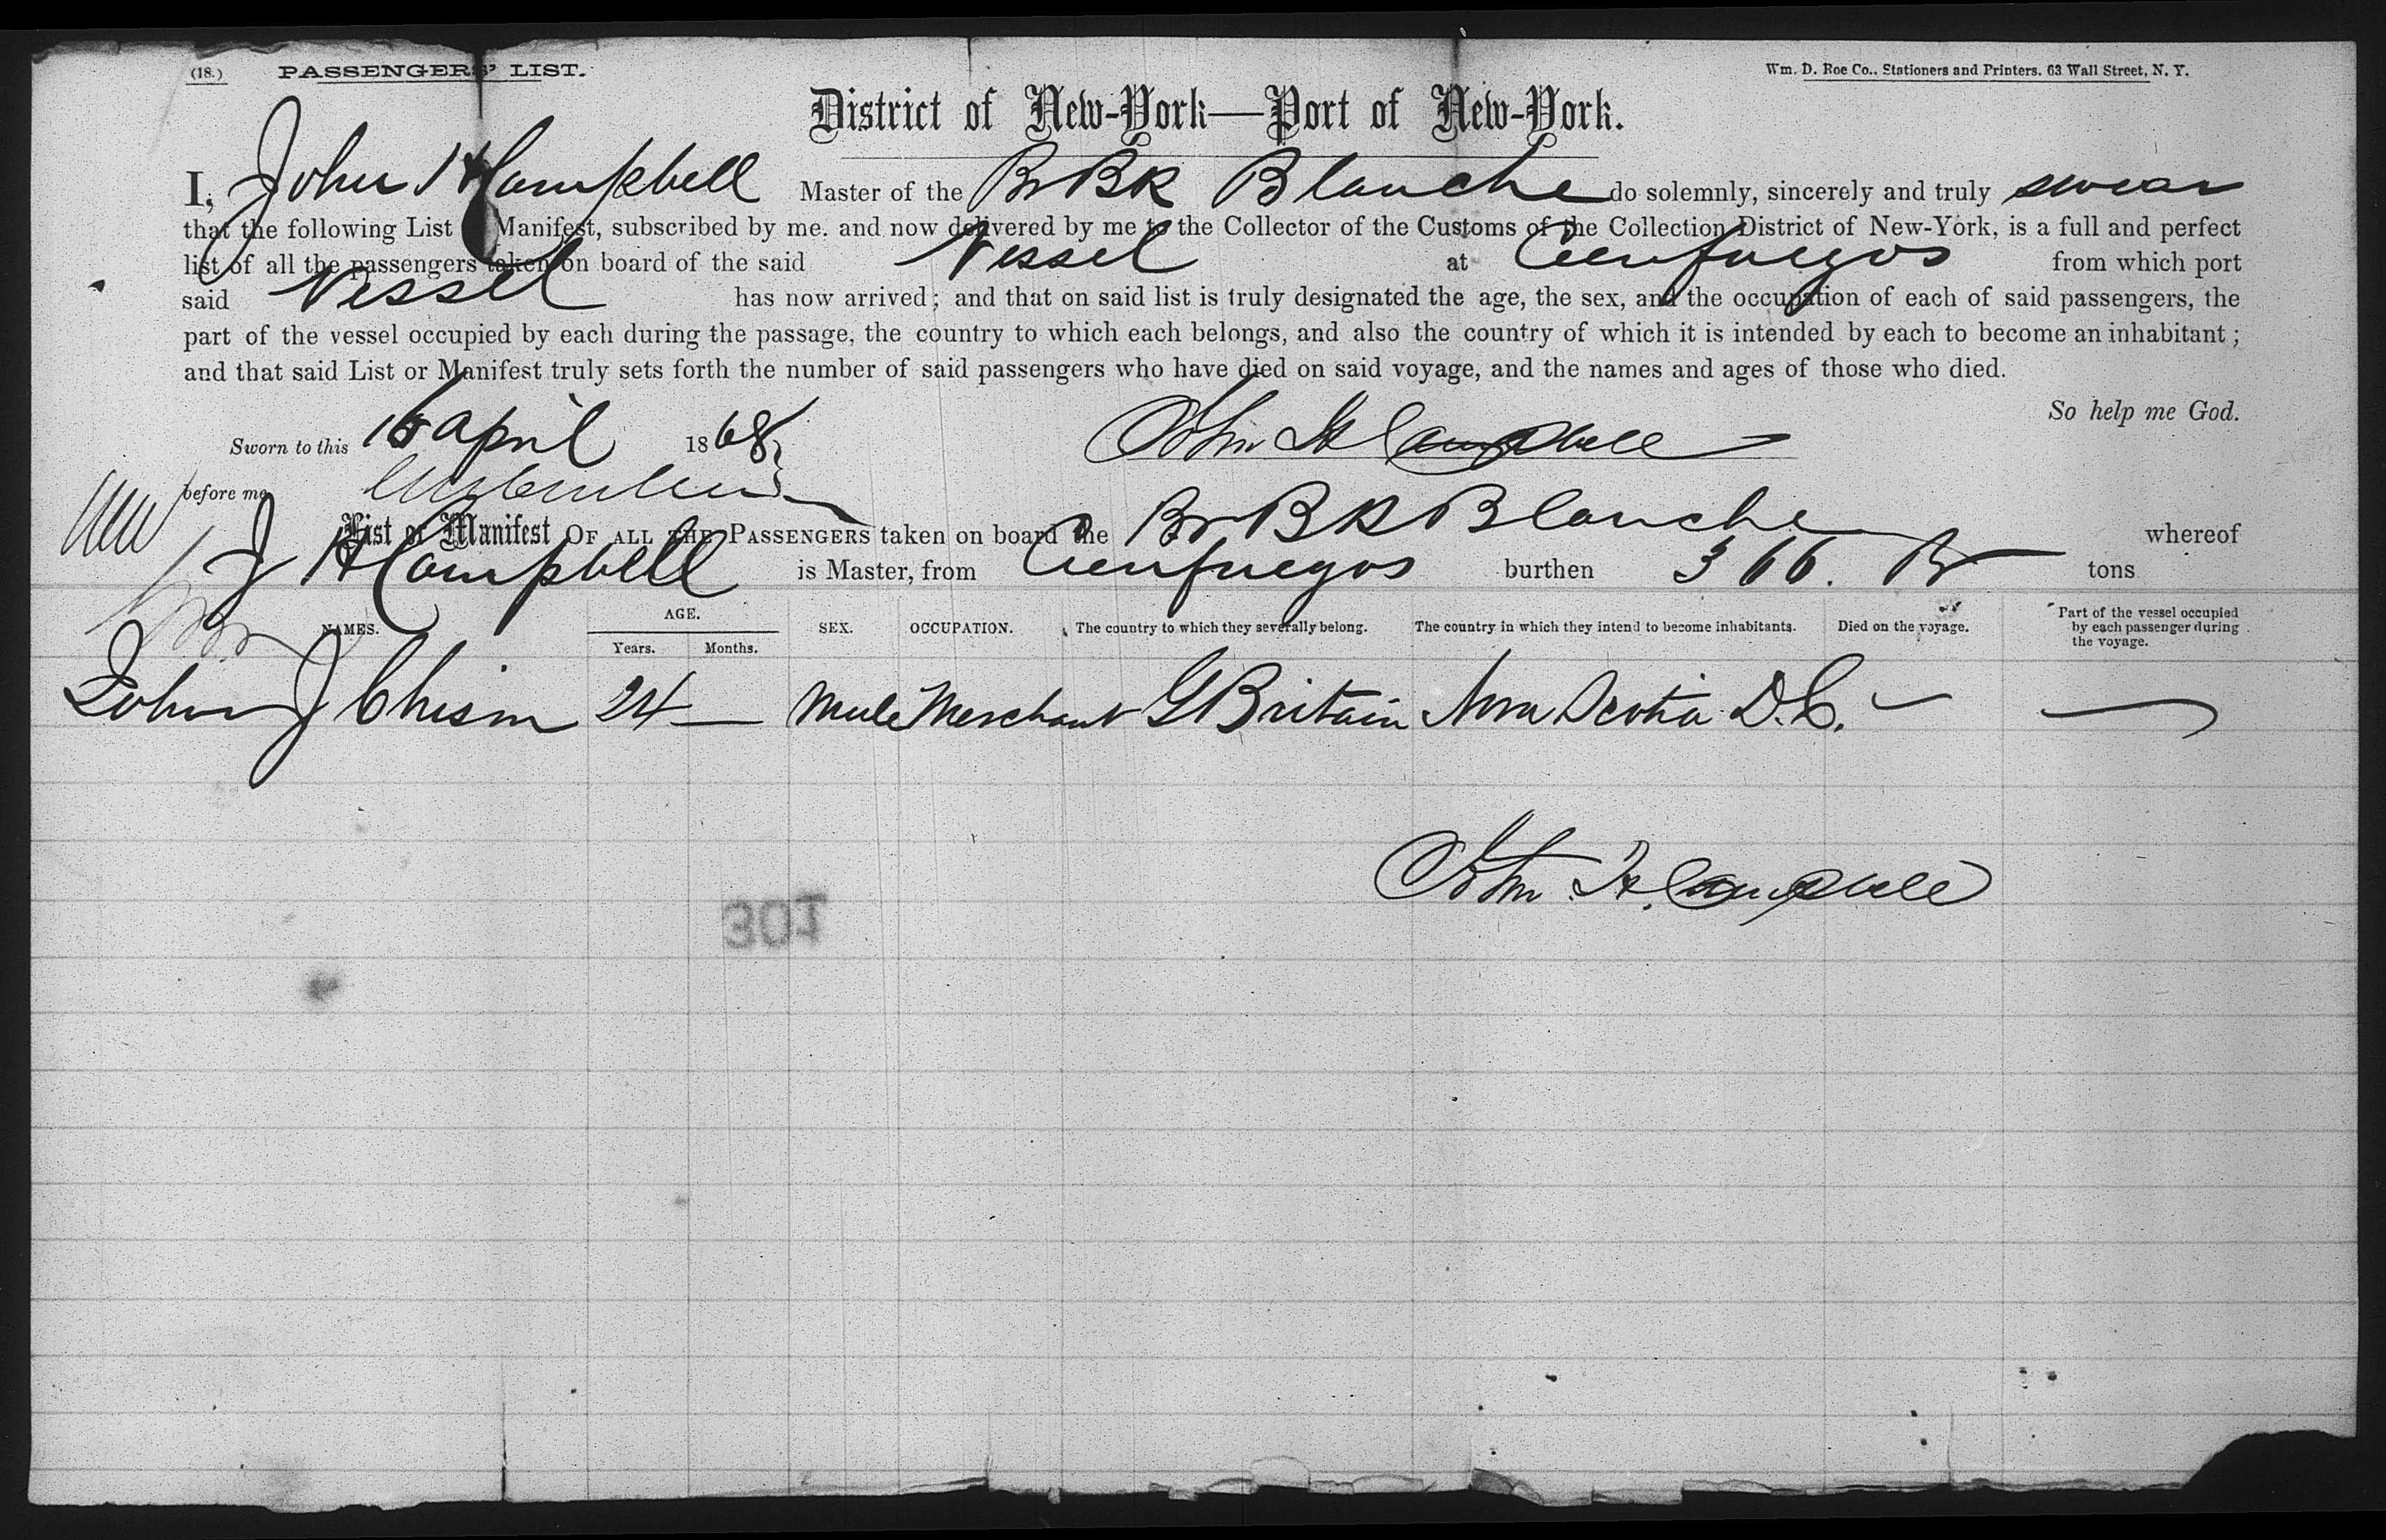 (18.) PASSENGERS' LIST. Wm. D. Roe Co., Stationers and Printers. 63 Wall Street, N. Y.
District of New-York—Port of New-York.
I, John H Campbell Master of the Br Bk Blanche do solemnly, sincerely and truly swear
that the following List Manifest, subscribed by me. and now delivered by me to the Collector of the Customs of the Collection District of New-York, is a full and perfect
list of all the passengers taken on board of the said Vessel at Cienfuegos from which port
said Vessel has now arrived; and that on said list is truly designated the age, the sex, and the occupation of each of said passengers, the
part of the vessel occupied by each during the passage, the country to which each belongs, and also the country of which it is intended by each to become an inhabitant;
and that said List or Manifest truly sets forth the number of said passengers who have died on said voyage, and the names and ages of those who died.
So help me God.
Sworn to this 16 April 1868 John H Campbell
before me
List or Manifest OF ALL THE PASSENGERS taken on board the Br Bk Blanche whereof
J H Campbell is Master, from Cienfuegos burthen 366. tons
NAMES. AGE. Years. Months. SEX. OCCUPATION. The country to which they severally belong. The country in which they intend to become inhabitants. Died on the voyage. Part of the vessel occupied by each passenger during the voyage.
John J Chism 24 — Male Merchant G Britain Nova Scotia D.C. — —
John H. Campbell
301